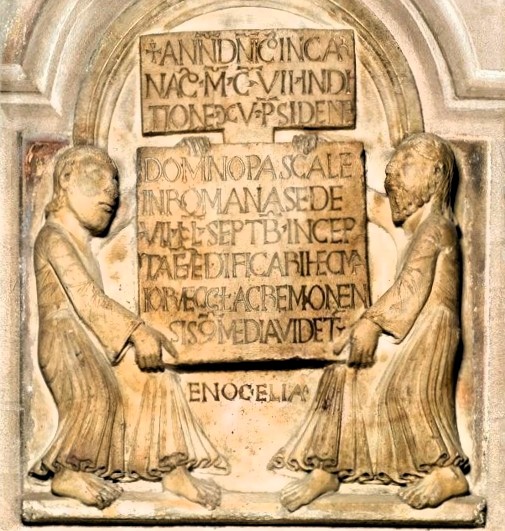 +ANN·DNĪC̄·INCA
NAC̄·M̄·C̄·VII·INDI
TIONE·XV·PSIDENE
DOMNO PASCALE
IN ROMANA SEDE
·VII·ĪD·SEPTB̄·INCEP
TA Ē EDIFICARI HEC MA
IOR ECC̄A CREMONEN
SIS
ENOC ELIA